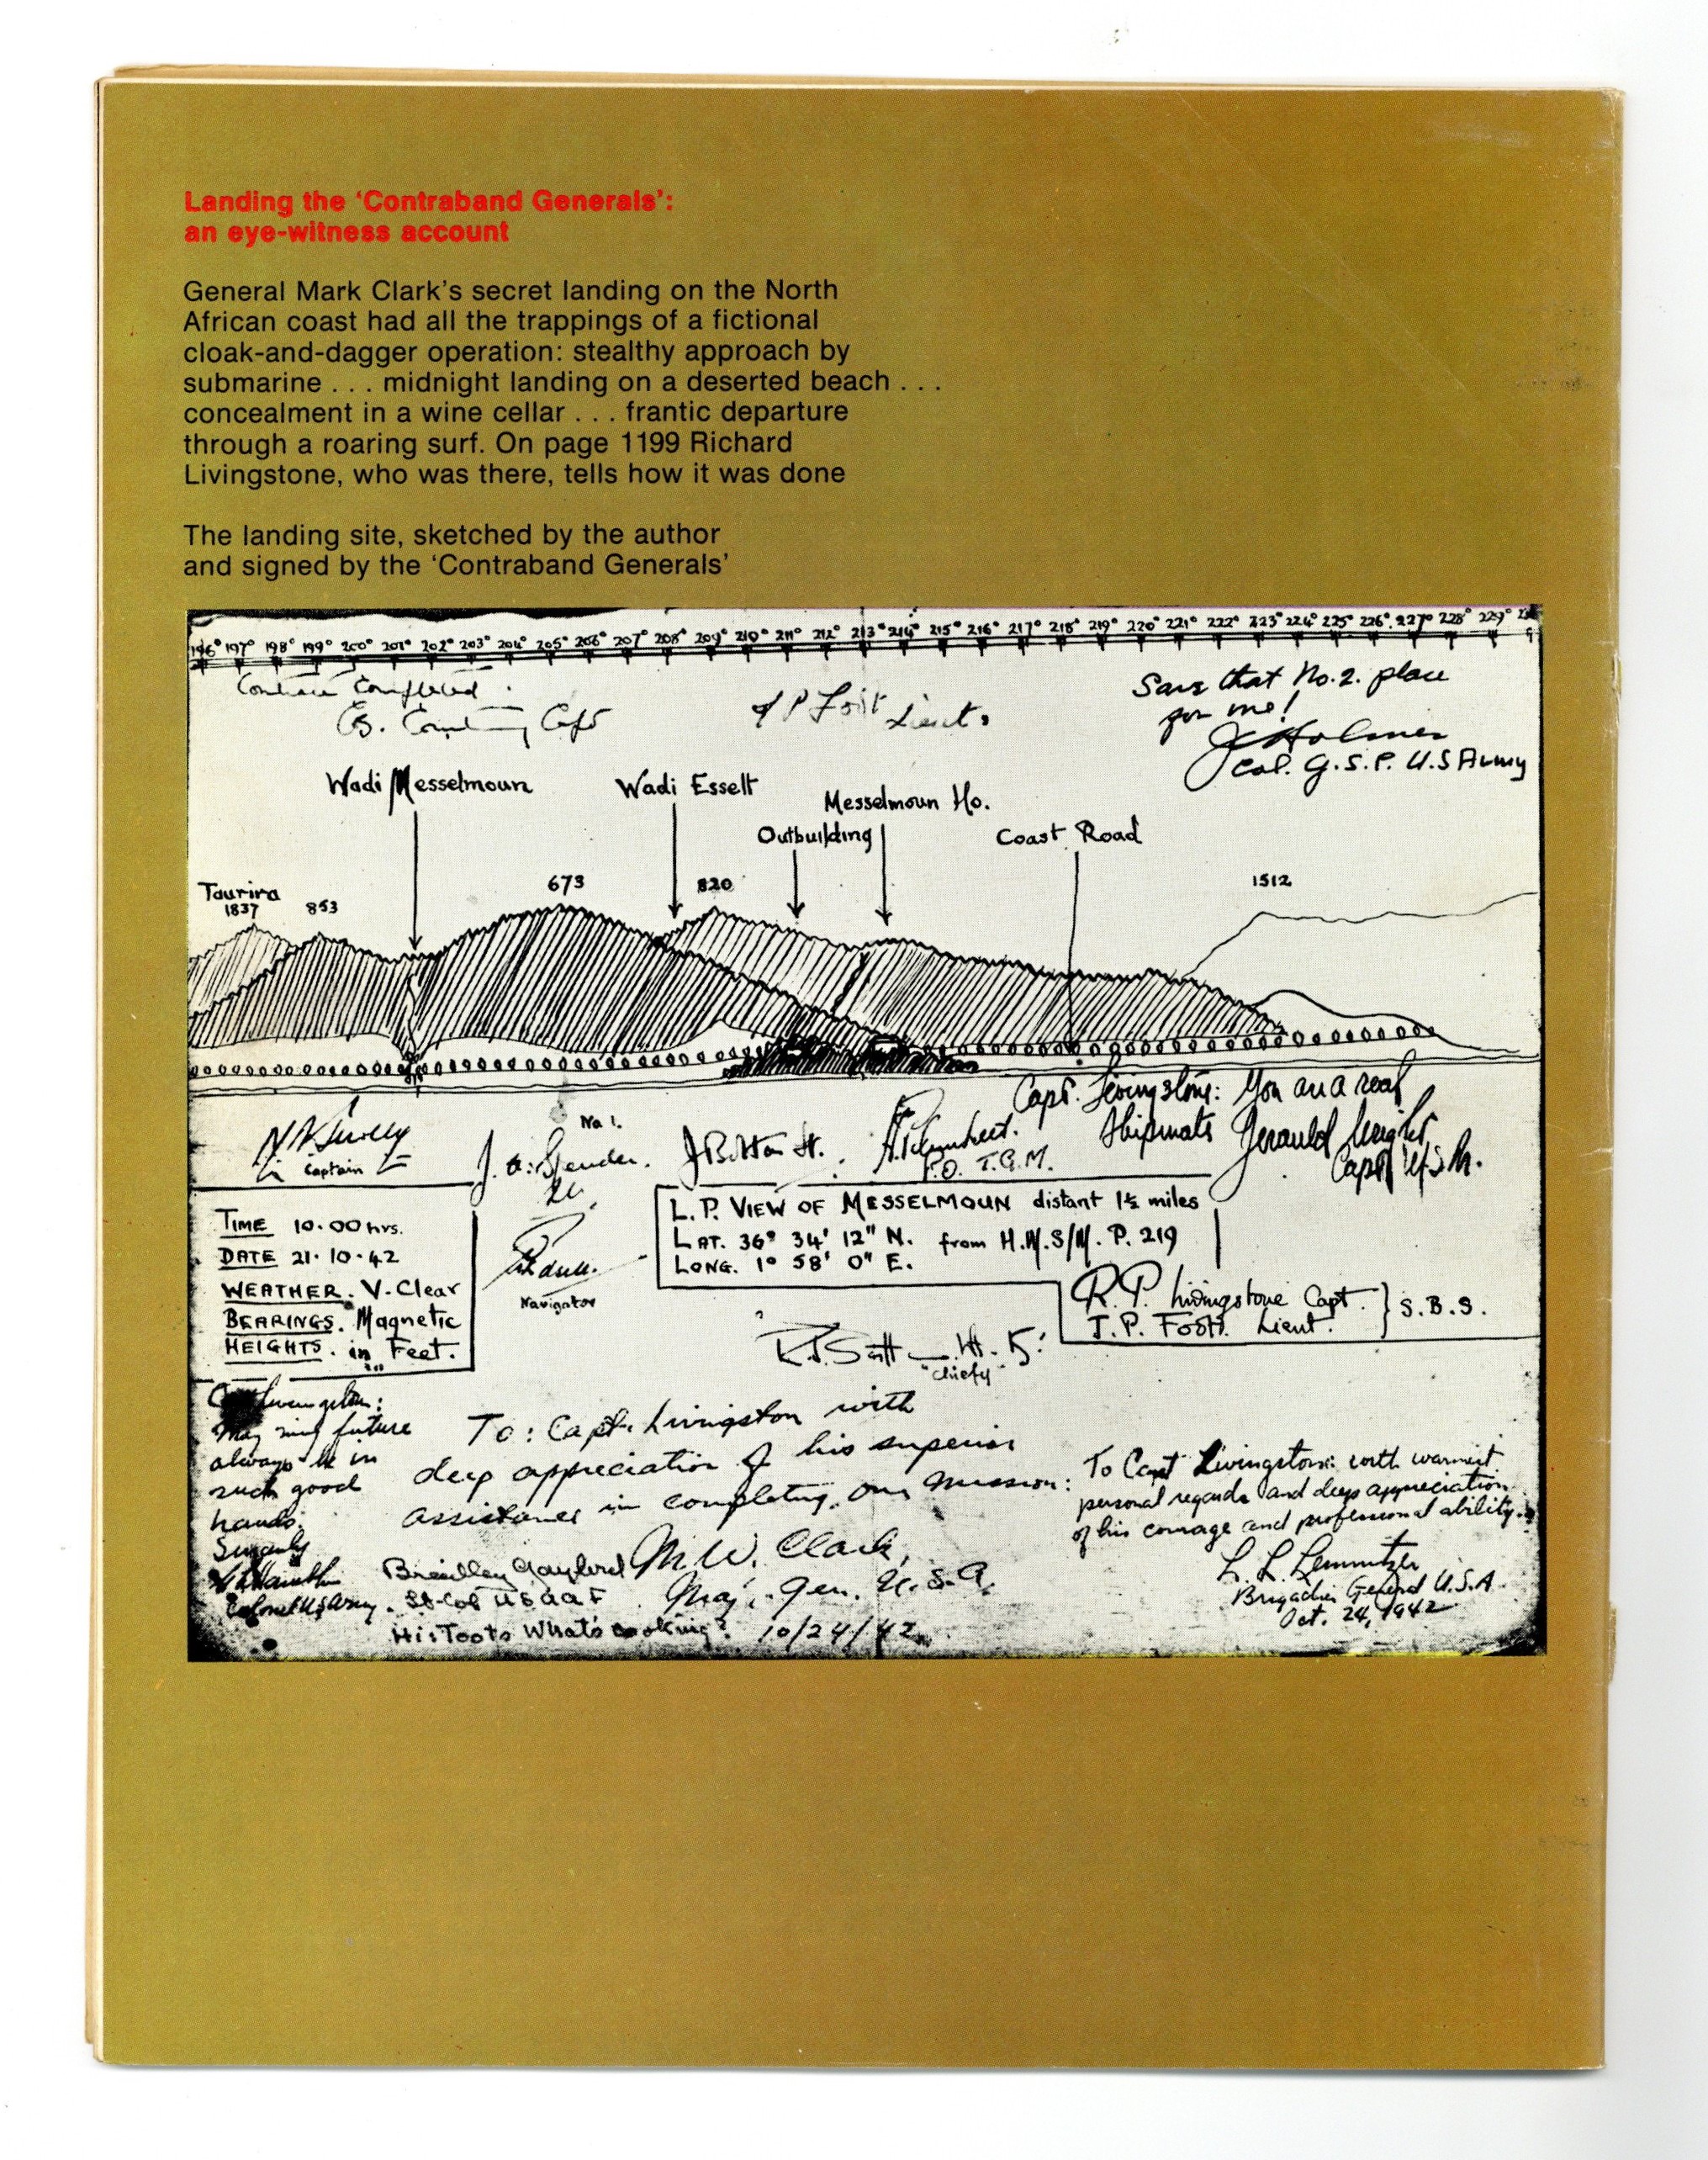 Landing the ‘Contraband Generals’:
an eye-witness account
General Mark Clark’s secret landing on the North
African coast had all the trappings of a fictional
cloak-and-dagger operation: stealthy approach by
submarine . . . midnight landing on a deserted beach . . .
concealment in a wine cellar . . . frantic departure
through a roaring surf. On page 1199 Richard
Livingstone, who was there, tells how it was done
The landing site, sketched by the author
and signed by the ‘Contraband Generals’
196° 197° 198° 199° 200° 201° 202° 203° 204° 205° 206° 207° 208° 209° 210° 211° 212° 213° 214° 215° 216° 217° 218° 219° 220° 221° 222° 223° 224° 225° 226° 227° 228° 229°
Completed
Capt
Lieut.
Save that No. 2. place
for me!
Holmes
Col. G.S.C. U.S Army
Wadi Messelmoun
Wadi Esselt
Messelmoun Ho.
Outbuilding
Coast Road
Taurira
1837
853
673
820
1512
Capt. Livingstone: You are a real
Shipmate Jerauld Wright
Capt U.S.N.
Captain
No 1.
P.O. T.G.M.
TIME 10.00 hrs.
DATE 21.10.42
WEATHER. V. Clear
BEARINGS. Magnetic
HEIGHTS. in Feet.
Navigator
L.P. VIEW OF MESSELMOUN distant 1½ miles
LAT. 36° 34' 12" N. from H.M.S/M. P. 219
LONG. 1° 58' 0" E.
R.P. Livingstone Capt. } S.B.S.
J.P. Foot. Lieut.
"Chiefy"
may my future
always be in
such good
hands.
Sincerely
Colonel US Army.
To: Capt. Livingston with
deep appreciation of his superior
assistance in completing our mission:
M.W. Clark,
Maj. Gen. U.S.A.
10/24/42
Gaylord
Lt Col USAAF
What's cooking?
To Capt Livingstone: with warmest
personal regards and deep appreciation
of his courage and professional ability.
L. L. Lemnitzer
Brigadier General U.S.A.
Oct. 24, 1942